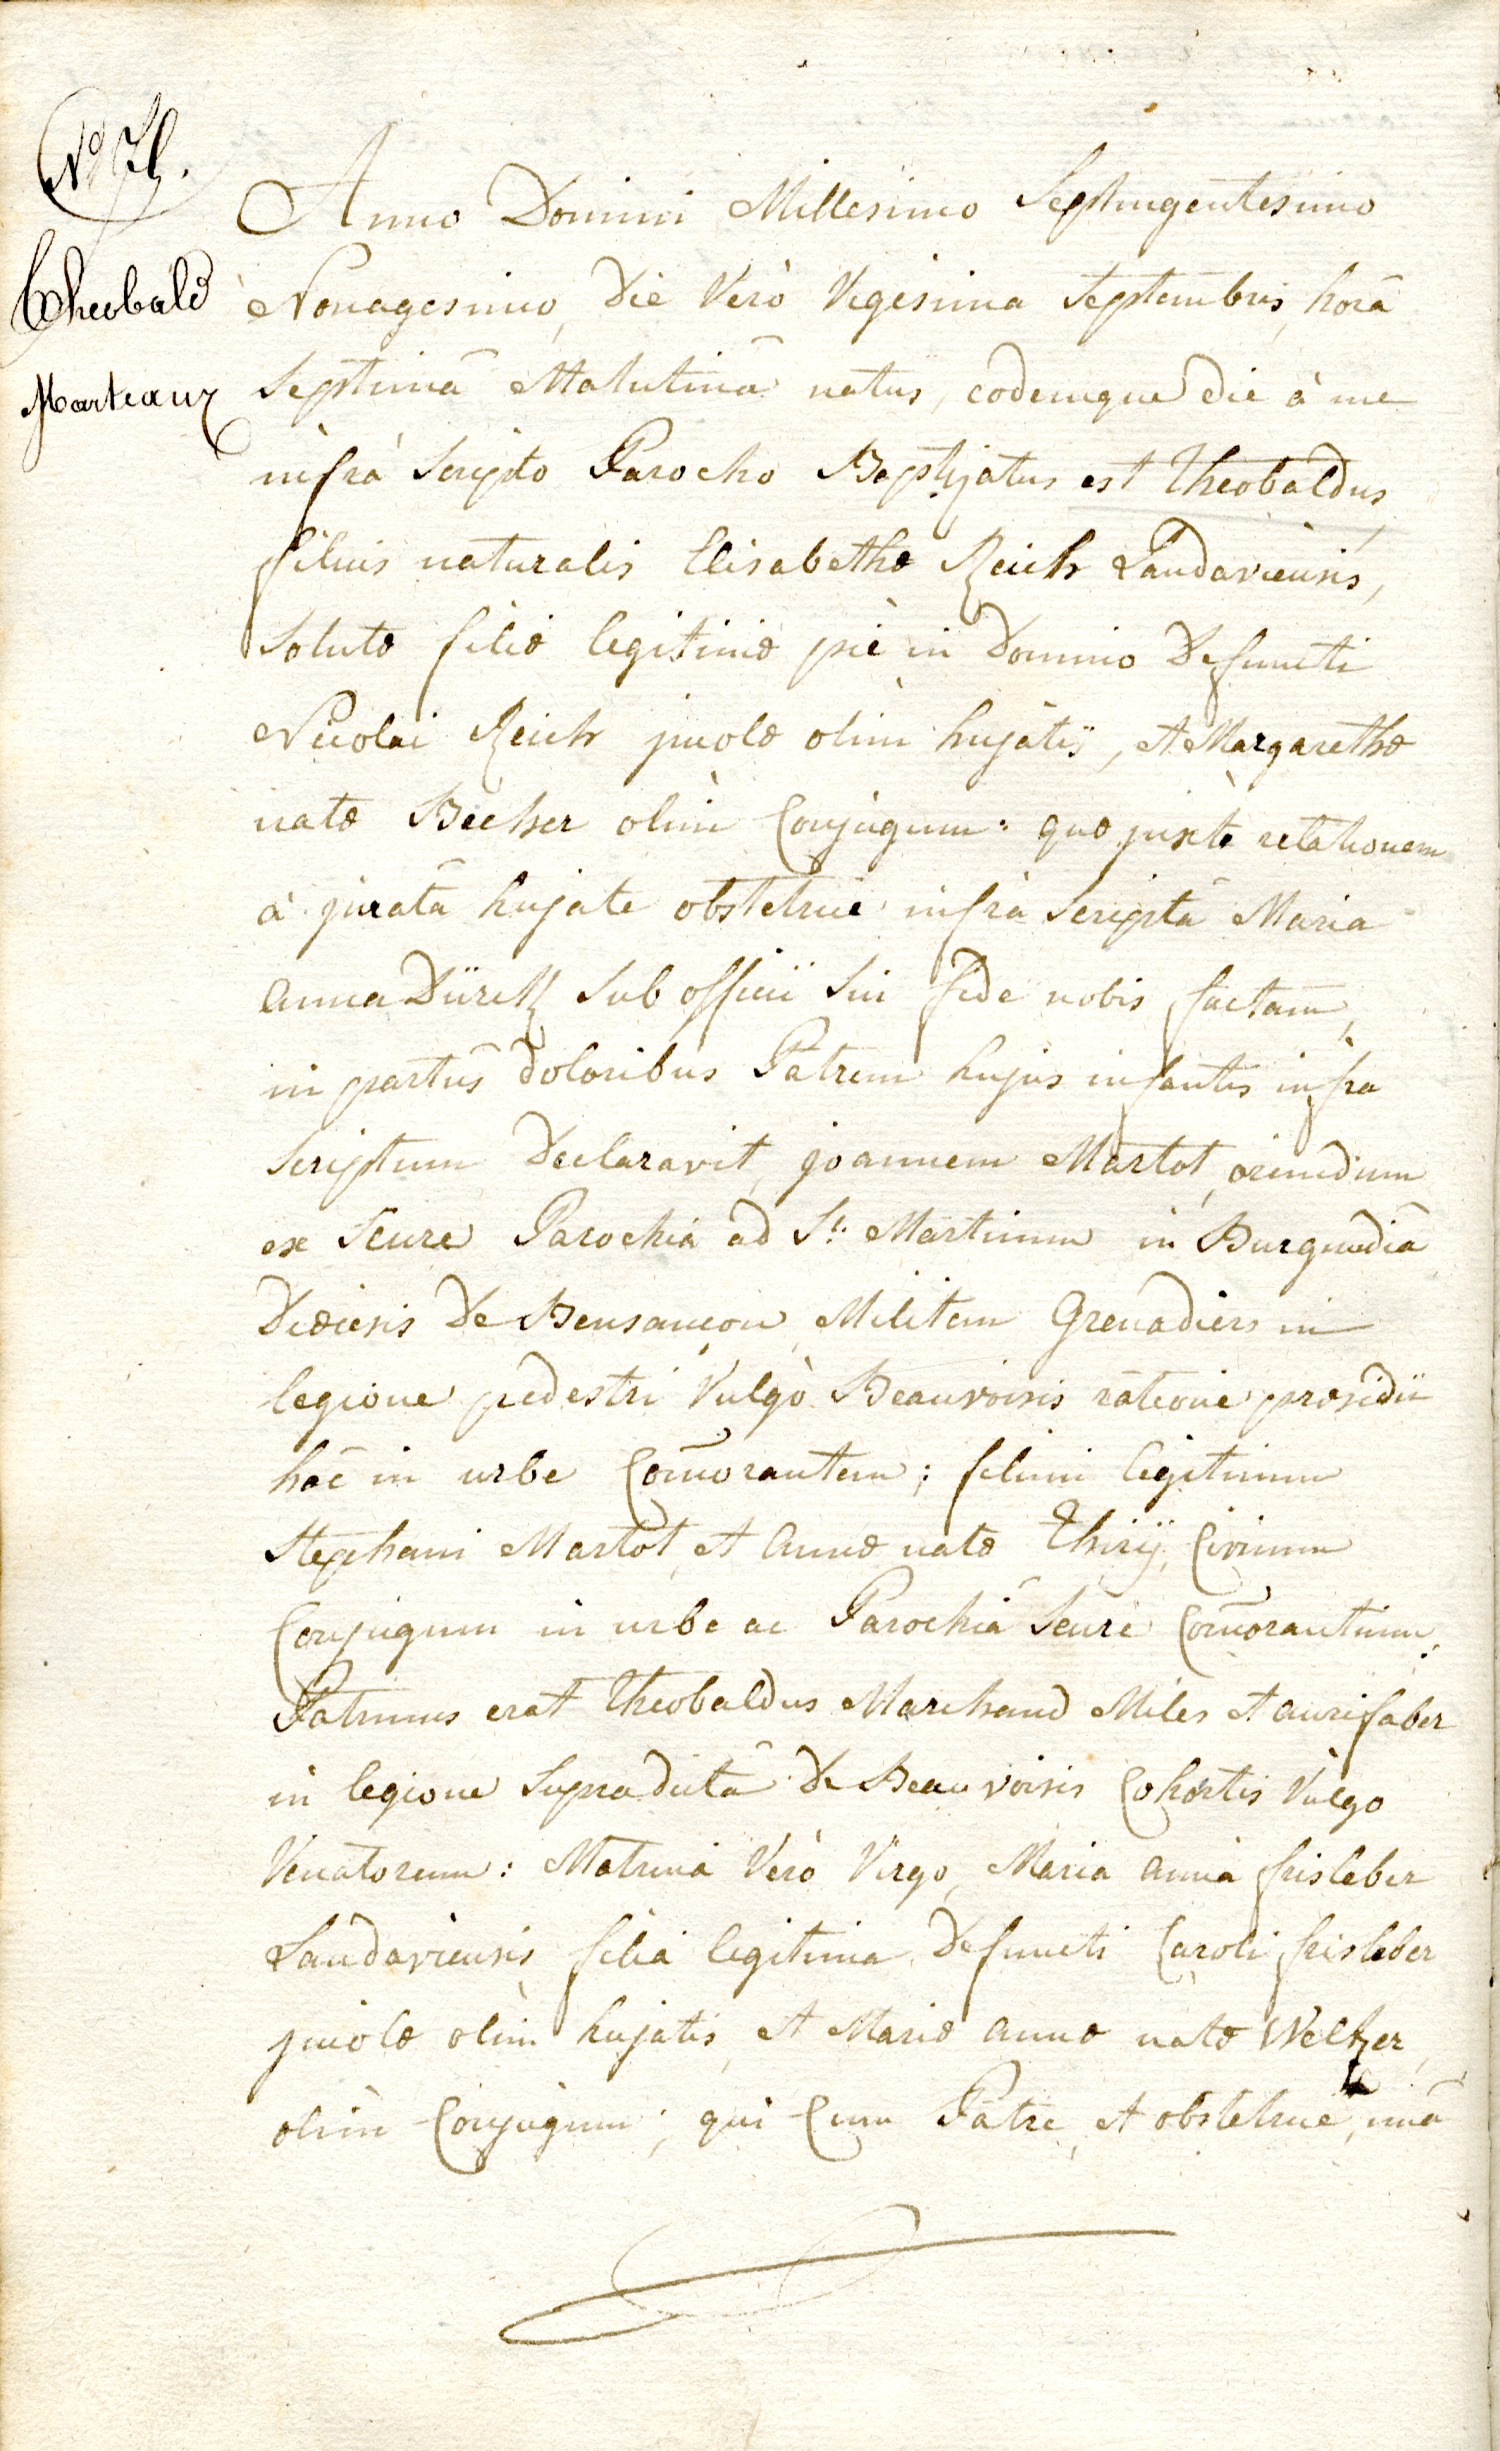 Nº 71.
Theobald
Marteaux
Anno Domini Millesimo Septingentesimo
Nonagesimo, die Verò Vigesima Septembris, horâ
Septimâ Matutinâ natus, eodemque die à me
infrà Scripto Parocho Baptizatus est Theobaldus,
filius naturalis Elisabethæ Reich Landaviensis,
Solutæ filiæ legitimæ piè in Domino Defuncti
Nicolai Reich incolæ olim hujatis, et Margarethæ
natæ Becker olim Conjugum: quæ juxta relationem
à jurata hujate obstetrice infrà Scriptâ Maria
Anna Dürell Sub officii Sui fide nobis factam,
in partûs doloribus Patrem hujus infantis infra
Scriptum Declaravit, joannem Martot, oriundum
ex Seure Parochiâ ad St. Martinum in Burgundiâ
Diœcesis De Bensancon, Militem Grenadiers in
legione pedestri Vulgò Beauvoisis ratione præsidii
hâc in urbe Com̄orantem; filium legitimum
Stephani Martot, et Annæ natæ Thirÿ, Civium
Conjugum in urbe ac Parochiâ Seure Com̄orantium:
Patrinus erat Theobaldus Marchand Miles et aurifaber
in legione Supradictâ De Beauvoisis Cohortis Vulgo
Venatorum: Matrina Verò Virgo, Maria Anna frisleber
Landaviensis filia legitima Defuncti Caroli frisleber
incolæ olim hujatis, et Mariæ Annæ natæ Weltzer,
olim Conjugum; qui Cum Patre, et obstetrice, unâ